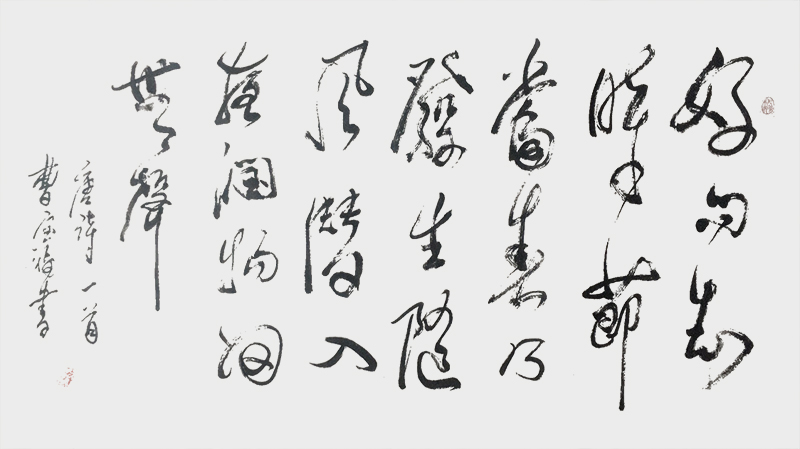 好雨知
時節
當春乃
發生隨
風潛入
夜潤物細
無聲
唐詩一首
曹書